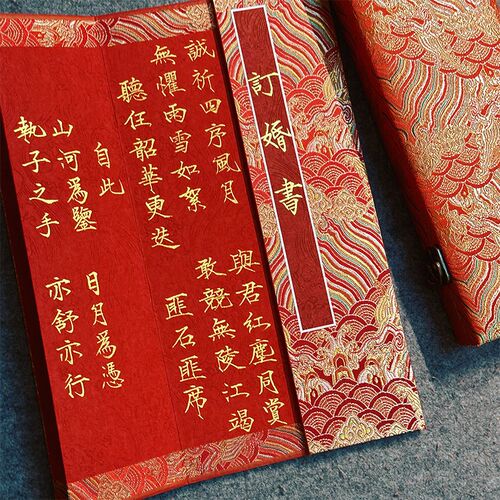 訂婚書
誠祈四序風月 與君紅塵月賞
無懼雨雪如絮 敢競無陵江竭
聽任韶華更迭 匪石匪席
自此
山河為鑒 日月為憑
執子之手 亦舒亦行